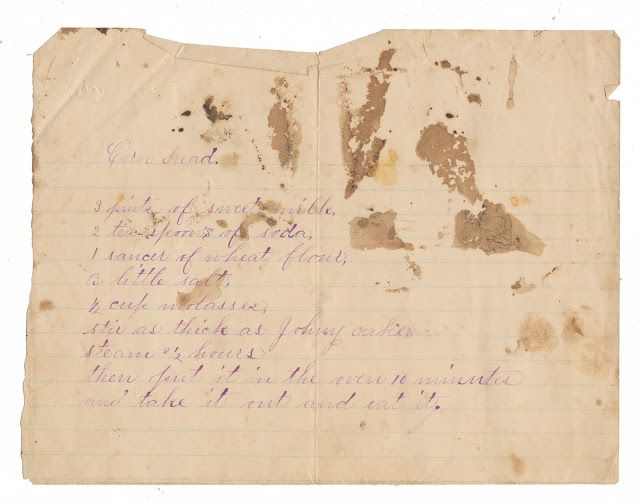 Corn bread.
3 pints of sweet milk,
2 tea spoons of soda,
1 saucer of wheat flour,
a little salt,
½ cup molasses,
stir as thick as Johny cakes
steam 2½ hours
then put it in the oven 10 minutes
and take it out and eat it.